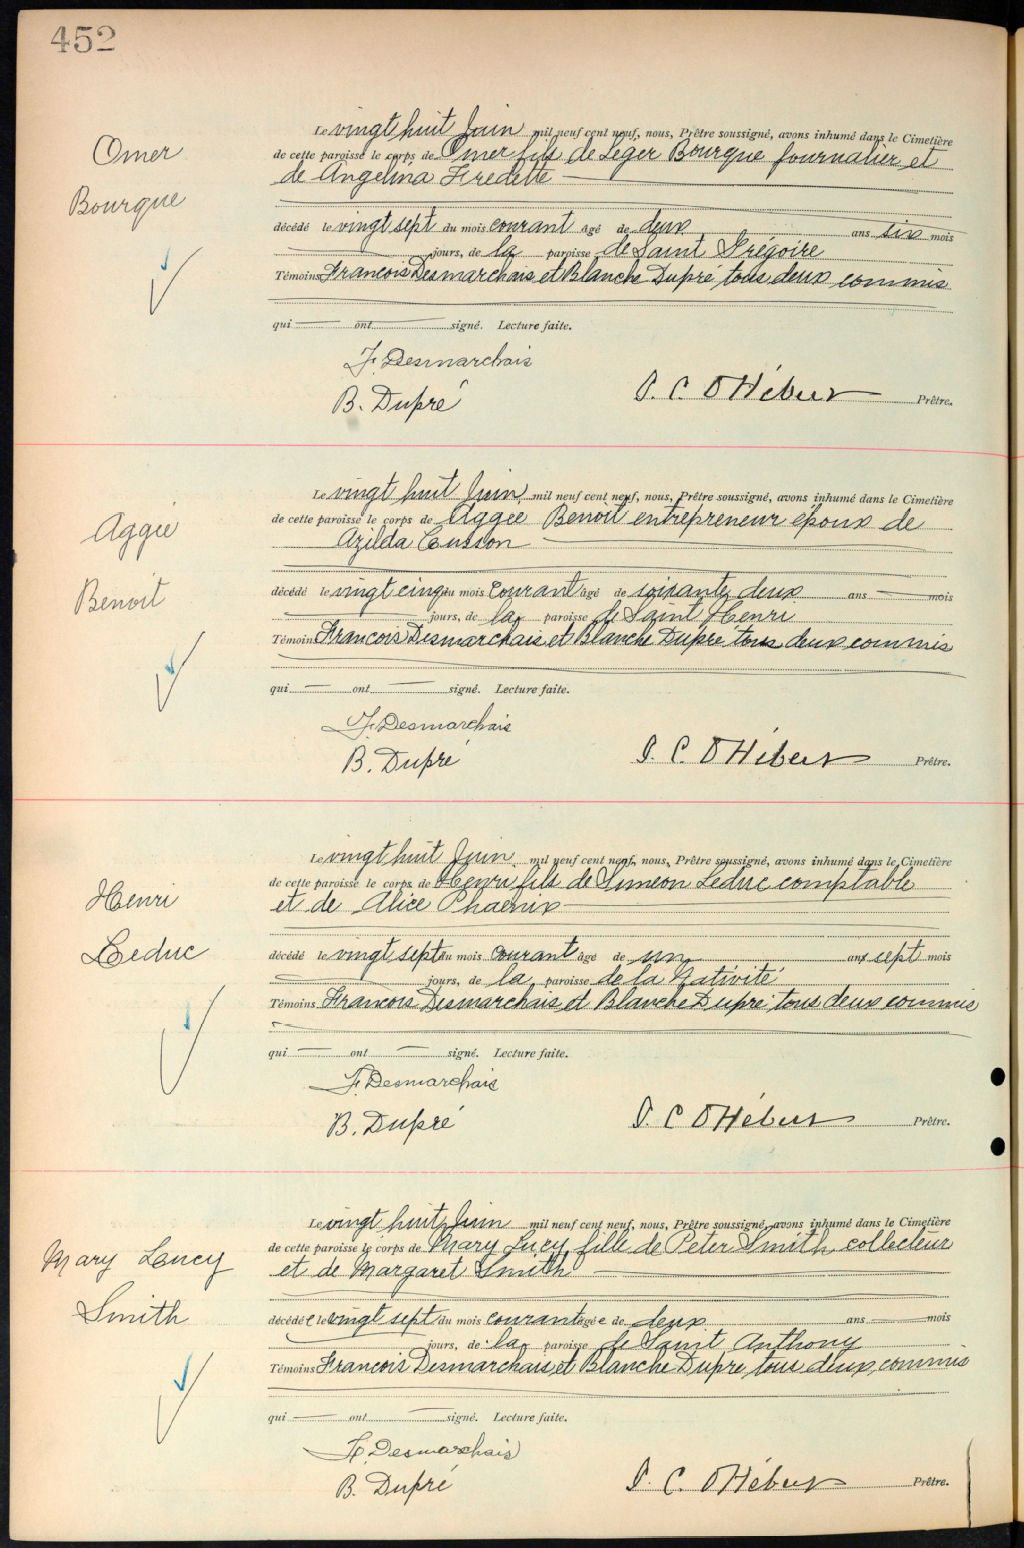 452
Omer
Bourque
Le vingt huit Juin mil neuf cent neuf, nous, Prêtre soussigné, avons inhumé dans le Cimetière
de cette paroisse le corps de Omer fils de Léger Bourque journalier et
de Angelina Fredette
décédé le vingt sept du mois courant âgé de deux ans six mois
jours, de la paroisse de Saint Grégoire
Témoins Francois Desmarchais et Blanche Dupré tous deux commis
qui ont signé. Lecture faite.
F. Desmarchais
B. Dupré
P. C. O Hébert Prêtre.
Aggée
Benoit
Le vingt huit Juin mil neuf cent neuf, nous, Prêtre soussigné, avons inhumé dans le Cimetière
de cette paroisse le corps de Aggée Benoit entrepreneur époux de
Azilda Cusson
décédé le vingt cinq du mois courant âgé de soixante deux ans mois
jours, de la paroisse de Saint Henri
Témoins Francois Desmarchais et Blanche Dupré tous deux commis
qui ont signé. Lecture faite.
F. Desmarchais
B. Dupré
P. C. O Hébert Prêtre.
Henri
Leduc
Le vingt huit Juin mil neuf cent neuf, nous, Prêtre soussigné, avons inhumé dans le Cimetière
de cette paroisse le corps de Henri fils de Simeon Leduc comptable
et de Alice Phaenix
décédé le vingt sept du mois courant âgé de un ans sept mois
jours, de la paroisse de la Nativité
Témoins Francois Desmarchais et Blanche Dupré tous deux commis
qui ont signé. Lecture faite.
F. Desmarchais
B. Dupré
P. C O Hébert Prêtre.
Mary Lucy
Smith
Le vingt huit Juin mil neuf cent neuf, nous, Prêtre soussigné, avons inhumé dans le Cimetière
de cette paroisse le corps de Mary Lucy fille de Peter Smith, collecteur
et de Margaret Smith
décédée le vingt sept du mois courant âgée de deux ans mois
jours, de la paroisse de Saint Anthony
Témoins Francois Desmarchais et Blanche Dupre tous deux commis
qui ont signé. Lecture faite.
F. Desmarchais
B. Dupré
P. C. O Hébert Prêtre.